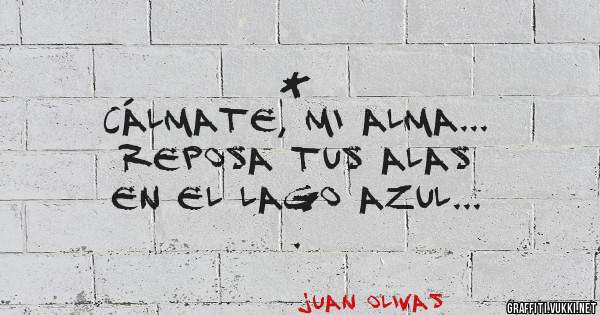 *
CÁLMATE, MI ALMA...
REPOSA TUS ALAS
EN EL LAGO AZUL...
.
JUAN OLIVAS
GRAFFITI.YUKKI.NET